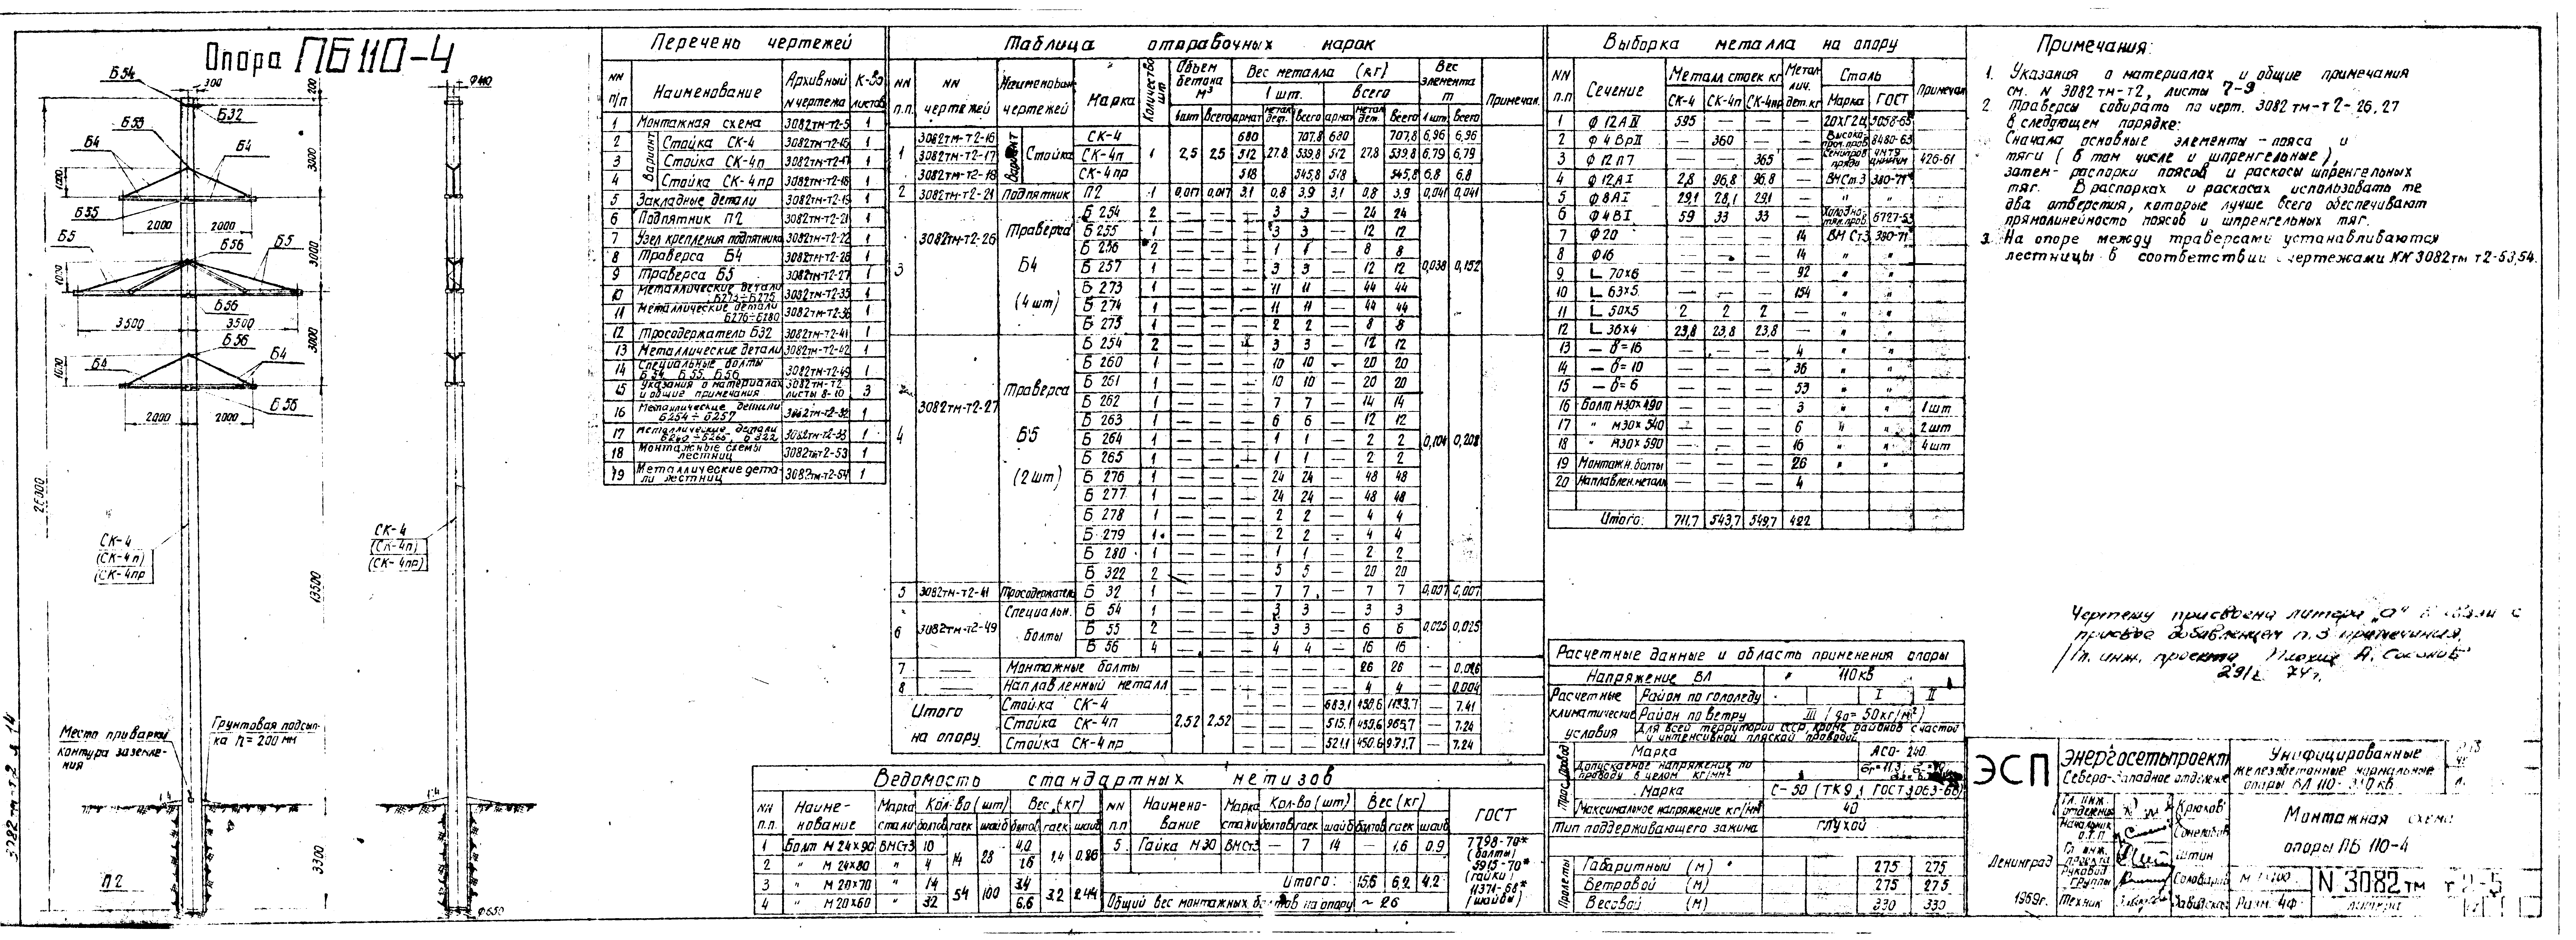 Опора ПБ110-4
Б54
300
φ440
200
Б32
Б53
Б4
Б4
3000
1000
Б55
2000
2000
Б56
Б5
Б5
3000
1000
Б56
3500
3500
Б56
3000
1000
Б4
Б4
Б56
2000
2000
26000
СК-4
(СК-4п)
(СК-4пр
СК-4
(СК-4п)
(СК-4пр)
13500
Место приварки
контура заземле-
ния
Грунтовая подсып-
ка h=200мм
П2
3300
φ650
3082тм-т2 л 14
Перечень чертежей
NN п/п Наименование Архивный N чертежа К-во листов
1 Монтажная схема 3082тм-т2-5 1
Вариант
2 Стойка СК-4 3082тм-т2-16 1
3 Стойка СК-4п 3082тм-т2-17 1
4 Стойка СК-4пр 3082тм-т2-18 1
5 Закладные детали 3082тм-т2-19 1
6 Подпятник П2 3082тм-т2-21 1
7 Узел крепления подпятника 3082тм-т2-22 1
8 Траверса Б4 3082тм-т2-26 1
9 Траверса Б5 3082тм-т2-27 1
10 Металлические детали Б273÷Б275 3082тм-т2-35 1
11 Металлические детали Б276÷Б280 3082тм-т2-36 1
12 Тросодержатель Б32 3082тм-т2-41 1
13 Металлические детали 3082тм-т2-42 1
14 Специальные болты Б54, Б55, Б56 3082тм-т2-49 1
15 Указания о материалах и общие примечания 3082тм-т2 листы 8-10 3
16 Металлические детали Б254÷Б257 3082тм-т2-32 1
17 Металлические детали Б260÷Б265, Б322 3082тм-т2-33 1
18 Монтажные схемы лестниц 3082тм т2-53 1
19 Металлические дета-ли лестниц 3082тм-т2-54 1
Таблица отправочных марок
NN п.п. NN чертежей Наименован. чертежей Марка Количество шт Объем бетона м³ Вес металла (кг) Вес элемента т Примечан.
1 шт. всего
1шт Всего армат метал. дет. Всего армат метал. дет. Всего 1шт. всего
1 Вариант Стойка 1 2,5 2,5
3082тм-т2-16 СК-4 680 707,8 680 707,8 6,96 6,96
3082тм-т2-17 СК-4п 512 27,8 539,8 512 27,8 539,8 6.79 6,79
3082тм-т2-18 СК-4пр 518 545,8 518 545,8 6,8 6.8
2 3082тм-т2-21 Подпятник П2 1 0,017 0,017 3.1 0,8 3.9 3,1 0,8 3.9 0,041 0,041
3 3082тм-т2-26 Траверса Б4 (4 шт) 0,038 0,152
Б 254 2 — — — 3 3 — 24 24
Б 255 1 — — — 3 3 — 12 12
Б 256 2 — — — 1 1 — 8 8
Б 257 1 — — — 3 3 — 12 12
Б 273 1 — — — 11 11 — 44 44
Б 274 1 — — — 11 11 — 44 44
Б 275 1 — — — 2 2 — 8 8
4 3082тм-т2-27 Траверса Б5 (2 шт) 0,104 0,208
Б 254 2 — — — 3 3 — 12 12
Б 260 1 — — — 10 10 — 20 20
Б 261 1 — — — 10 10 — 20 20
Б 262 1 — — — 7 7 — 14 14
Б 263 1 — — — 6 6 — 12 12
Б 264 1 — — — 1 1 — 2 2
Б 265 1 — — — 1 1 — 2 2
Б 276 1 — — — 24 24 — 48 48
Б 277 1 — — — 24 24 — 48 48
Б 278 1 — — — 2 2 — 4 4
Б 279 1 — — — 2 2 — 4 4
Б 280 1 — — — 1 1 — 2 2
Б 322 2 — — — 5 5 — 20 20
5 3082тм-т2-41 Тросодержатель Б 32 1 — — — 7 7 — 7 7 0,007 0,007
6 3082тм-т2-49 Специальн. болты 0,025 0,025
Б 54 1 — — — 3 3 — 3 3
Б 55 2 — — — 3 3 — 6 6
Б 56 4 — — — 4 4 — 16 16
7 — Монтажные болты — — — — — — 26 26 — 0.026
8 — Наплавленный металл — — — — — — 4 4 — 0.004
Итого на опору 2,52 2,52
Стойка СК-4 683,1 450,6 1133,7 — 7.41
Стойка СК-4п 515,1 450,6 965,7 — 7.24
Стойка СК-4пр 521,1 450.6 971,7 — 7.24
Ведомость стандартных метизов
NN п.п. Наиме-нование Марка стали Кол-во (шт) Вес, (кг) NN п.п Наимено-вание Марка стали Кол-во (шт) Вес (кг) ГОСТ
болтов гаек шайб болтов гаек шайб болтов гаек шайб болтов гаек шайб
1 Болт М 24×90 ВМСт3 10 14 28 4,0 1,4 0,86 5 Гайка М30 ВМСт3 — 7 14 — 1,6 0.9
2 " М 24×80 " 4 1.6
3 " М 20×70 " 14 54 100 3.4 3.2 2.44
4 " М 20×60 " 32 6,6
Итого: 15,6 6,2 4.2
Общий вес монтажных болтов на опору ~ 26
7798-70* (болты)
5915-70* (гайки)
11371-68* (шайбы)
Выборка металла на опору
NN п.п Сечение Металл стоек кг Метал-лич. дет. кг Сталь Примечан
СК-4 СК-4п СК-4пр Марка ГОСТ
1 φ 12АIV 595 — — — 20ХГ2Ц 5058-65*
2 φ 4ВрII — 360 — — Высоко-проч.пров. 8480-63
3 φ 12П7 — — 365 — 426-61
4 φ 12АI 2,8 96,8 96,8 — ВМСт.3 380-71*
5 φ 8АI 29,1 28,1 29,1 — " "
6 φ 4ВI 59 33 33 — Холодно-тян.пров. 6727-53
7 φ 20 — — — 14 ВМСт3 380-71*
8 φ16 — — — 14 " "
9 L 70×6 — — — 92 " "
10 L 63×5 — — — 154 " "
11 L 50×5 2 2 2 — " "
12 L 36×4 23,8 23,8 23,8 — " "
13 — δ=16 — — — 4 " "
14 — δ=10 — — — 36 " "
15 — δ=6 — — — 53 " "
16 Болт М30×490 — — — 3 " " 1шт
17 " М30×540 — — — 6 " " 2шт
18 " М30×590 — — — 16 " " 4шт
19 Монтажн.болты — — — 26 " "
20 Наплавлен.металл — — — 4
Итого: 711,7 543,7 549,7 422
Расчетные данные и область применения опоры
Напряжение ВЛ 110кВ
Расчетные климатические условия
Район по гололеду I II
Район по ветру III (q₀=50кг/м²)
Для всей территории СССР, кроме районов с частой
и интенсивной пляской проводов
Провод
Марка АСО-240
Допускаемое напряжение по
проводу в целом кг/мм²
Трос
Марка С-50 (ТК 9,1 ГОСТ 3063-66)
Максимальное напряжение кг/мм² 40
Тип поддерживающего зажима глухой
Пролеты
Габаритный (м) 275 275
Ветровой (м) 275 275
Весовой (м) 330 330
Примечания:
1. Указания о материалах и общие примечания
см. N 3082тм-т2, листы 7-9.
2 Траверсы собирать по черт. 3082тм-т2-26,27
в следующем порядке:
Сначала основные элементы - пояса и
тяги (в том числе и шпренгельные),
затем - распорки поясов и раскосы шпренгельных
тяг. В распорках и раскосах использовать те
два отверстия, которые лучше всего обеспечивают
прямолинейность поясов и шпренгельных тяг.
3. На опоре между траверсами устанавливаются
лестницы в соответствии с чертежами NN 3082тм т2-53,54.
Чертежу присвоена литера „а" в связи с
добавлением п.3 примечания.
Гл. инж. проекта
74г.
ЭСП
Энергосетьпроект
Северо-Западное отделение
Унифицированные
железобетонные нормальные
опоры ВЛ 110-330кВ
Гл. инж. отделения Крюков
Начальник О.Т.П.
Гл инж. проекта Штин
Руковод группы
Техник
Ленинград
1969г.
Монтажная схема
опоры ПБ 110-4
М 1:100
Разм. 4ф
N 3082тм т2-5
литера